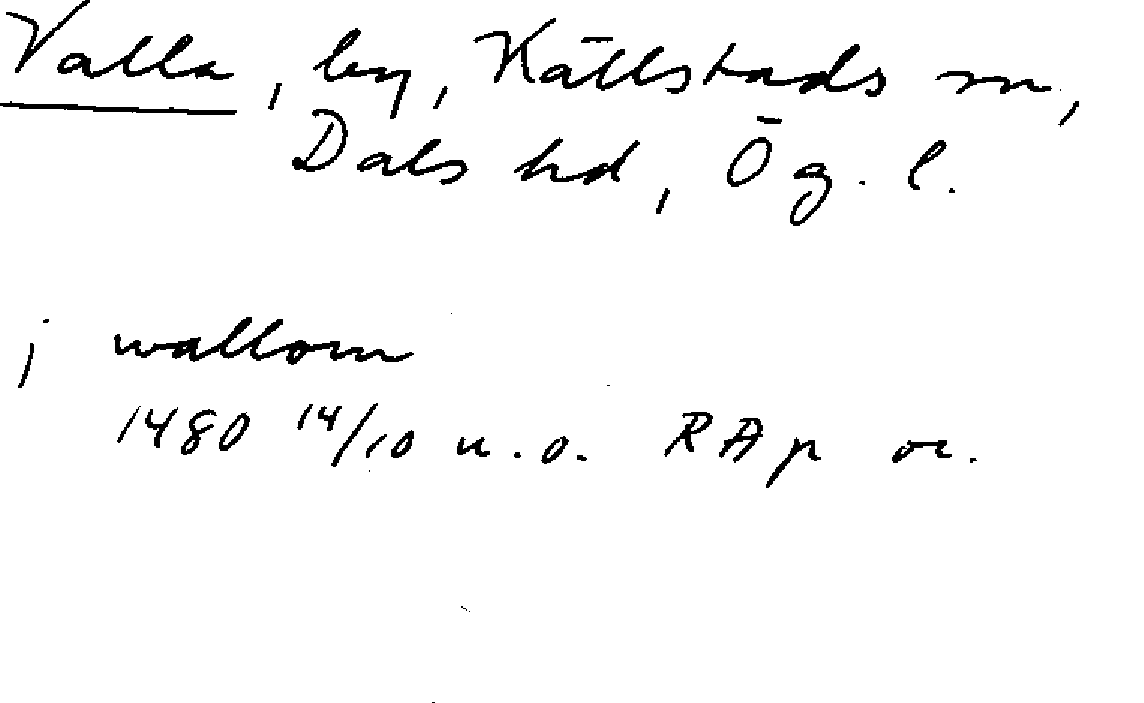 Valla, by, Källstads sn,
Dals hd, Ög. l.
j wallom
1480 14/10 u.o. RAp or.